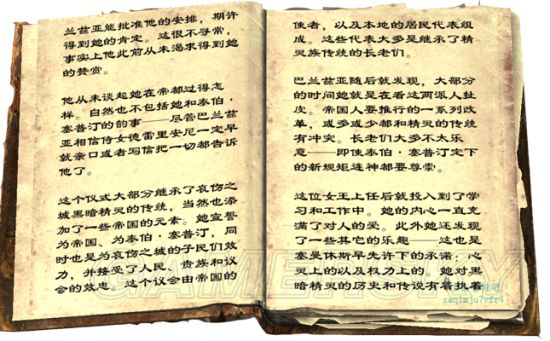 兰兹亚能批准他的安排，期许
得到她的肯定。这很不寻常，
事实上他此前从未渴求得到她
的赞赏。
他从未谈起她在帝都过得怎
样。自然也不包括她和泰伯·
塞普汀的韵事——尽管巴兰兹
亚相信侍女德雷里安尼一定早
就亲口或者写信把一切都告诉
他了。
这个仪式大部分继承了哀伤之
城黑暗精灵的传统，当然也添
加了一些帝国的元素。她宣誓
同为帝国、为泰伯·塞普汀，同
时也是为哀伤之城的子民们效
力，并接受了人民、贵族和议
会的效忠。这个议会由帝国的
使者，以及本地的居民代表组
成。这些代表大多是继承了精
灵族传统的长老们。
巴兰兹亚随后就发现，大部分
的时间她就是在看这两派人扯
皮。帝国人要推行的一系列改
革，或多或少都和精灵的传统
有冲突。长老们大多不太乐
意——即使泰伯·塞普汀定下
的新规矩连神都要尊崇。
这位女王上任后就投入到了学
习和工作中。她的内心一直充
满了对人的爱。此外她还发现
了一些其它的乐趣——这也是
塞曼休斯早先许下的承诺，心
灵上的以及权力上的。她对黑
暗精灵的历史和传说有着执着
GAMERSKY
zaq1mju7vfr4